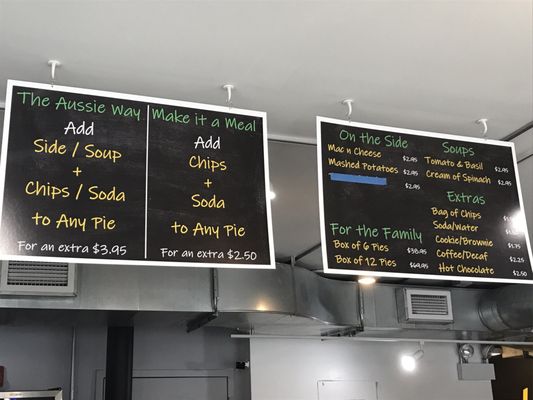 The Aussie Way
Add
Side / Soup
+
Chips / Soda
to Any Pie
For an extra $3.95
Make it a Meal
Add
Chips
+
Soda
to Any Pie
For an extra $2.50
On the Side
Mac n Cheese $2.95
Mashed Potatoes $2.95
$2.95
For the Family
Box of 6 Pies $38.95
Box of 12 Pies $69.95
Soups
Tomato & Basil $2.95
Cream of Spinach $2.95
Extras
Bag of Chips
Soda/Water
Cookie/Brownie $1.75
Coffee/Decaf $2.25
Hot Chocolate $2.50